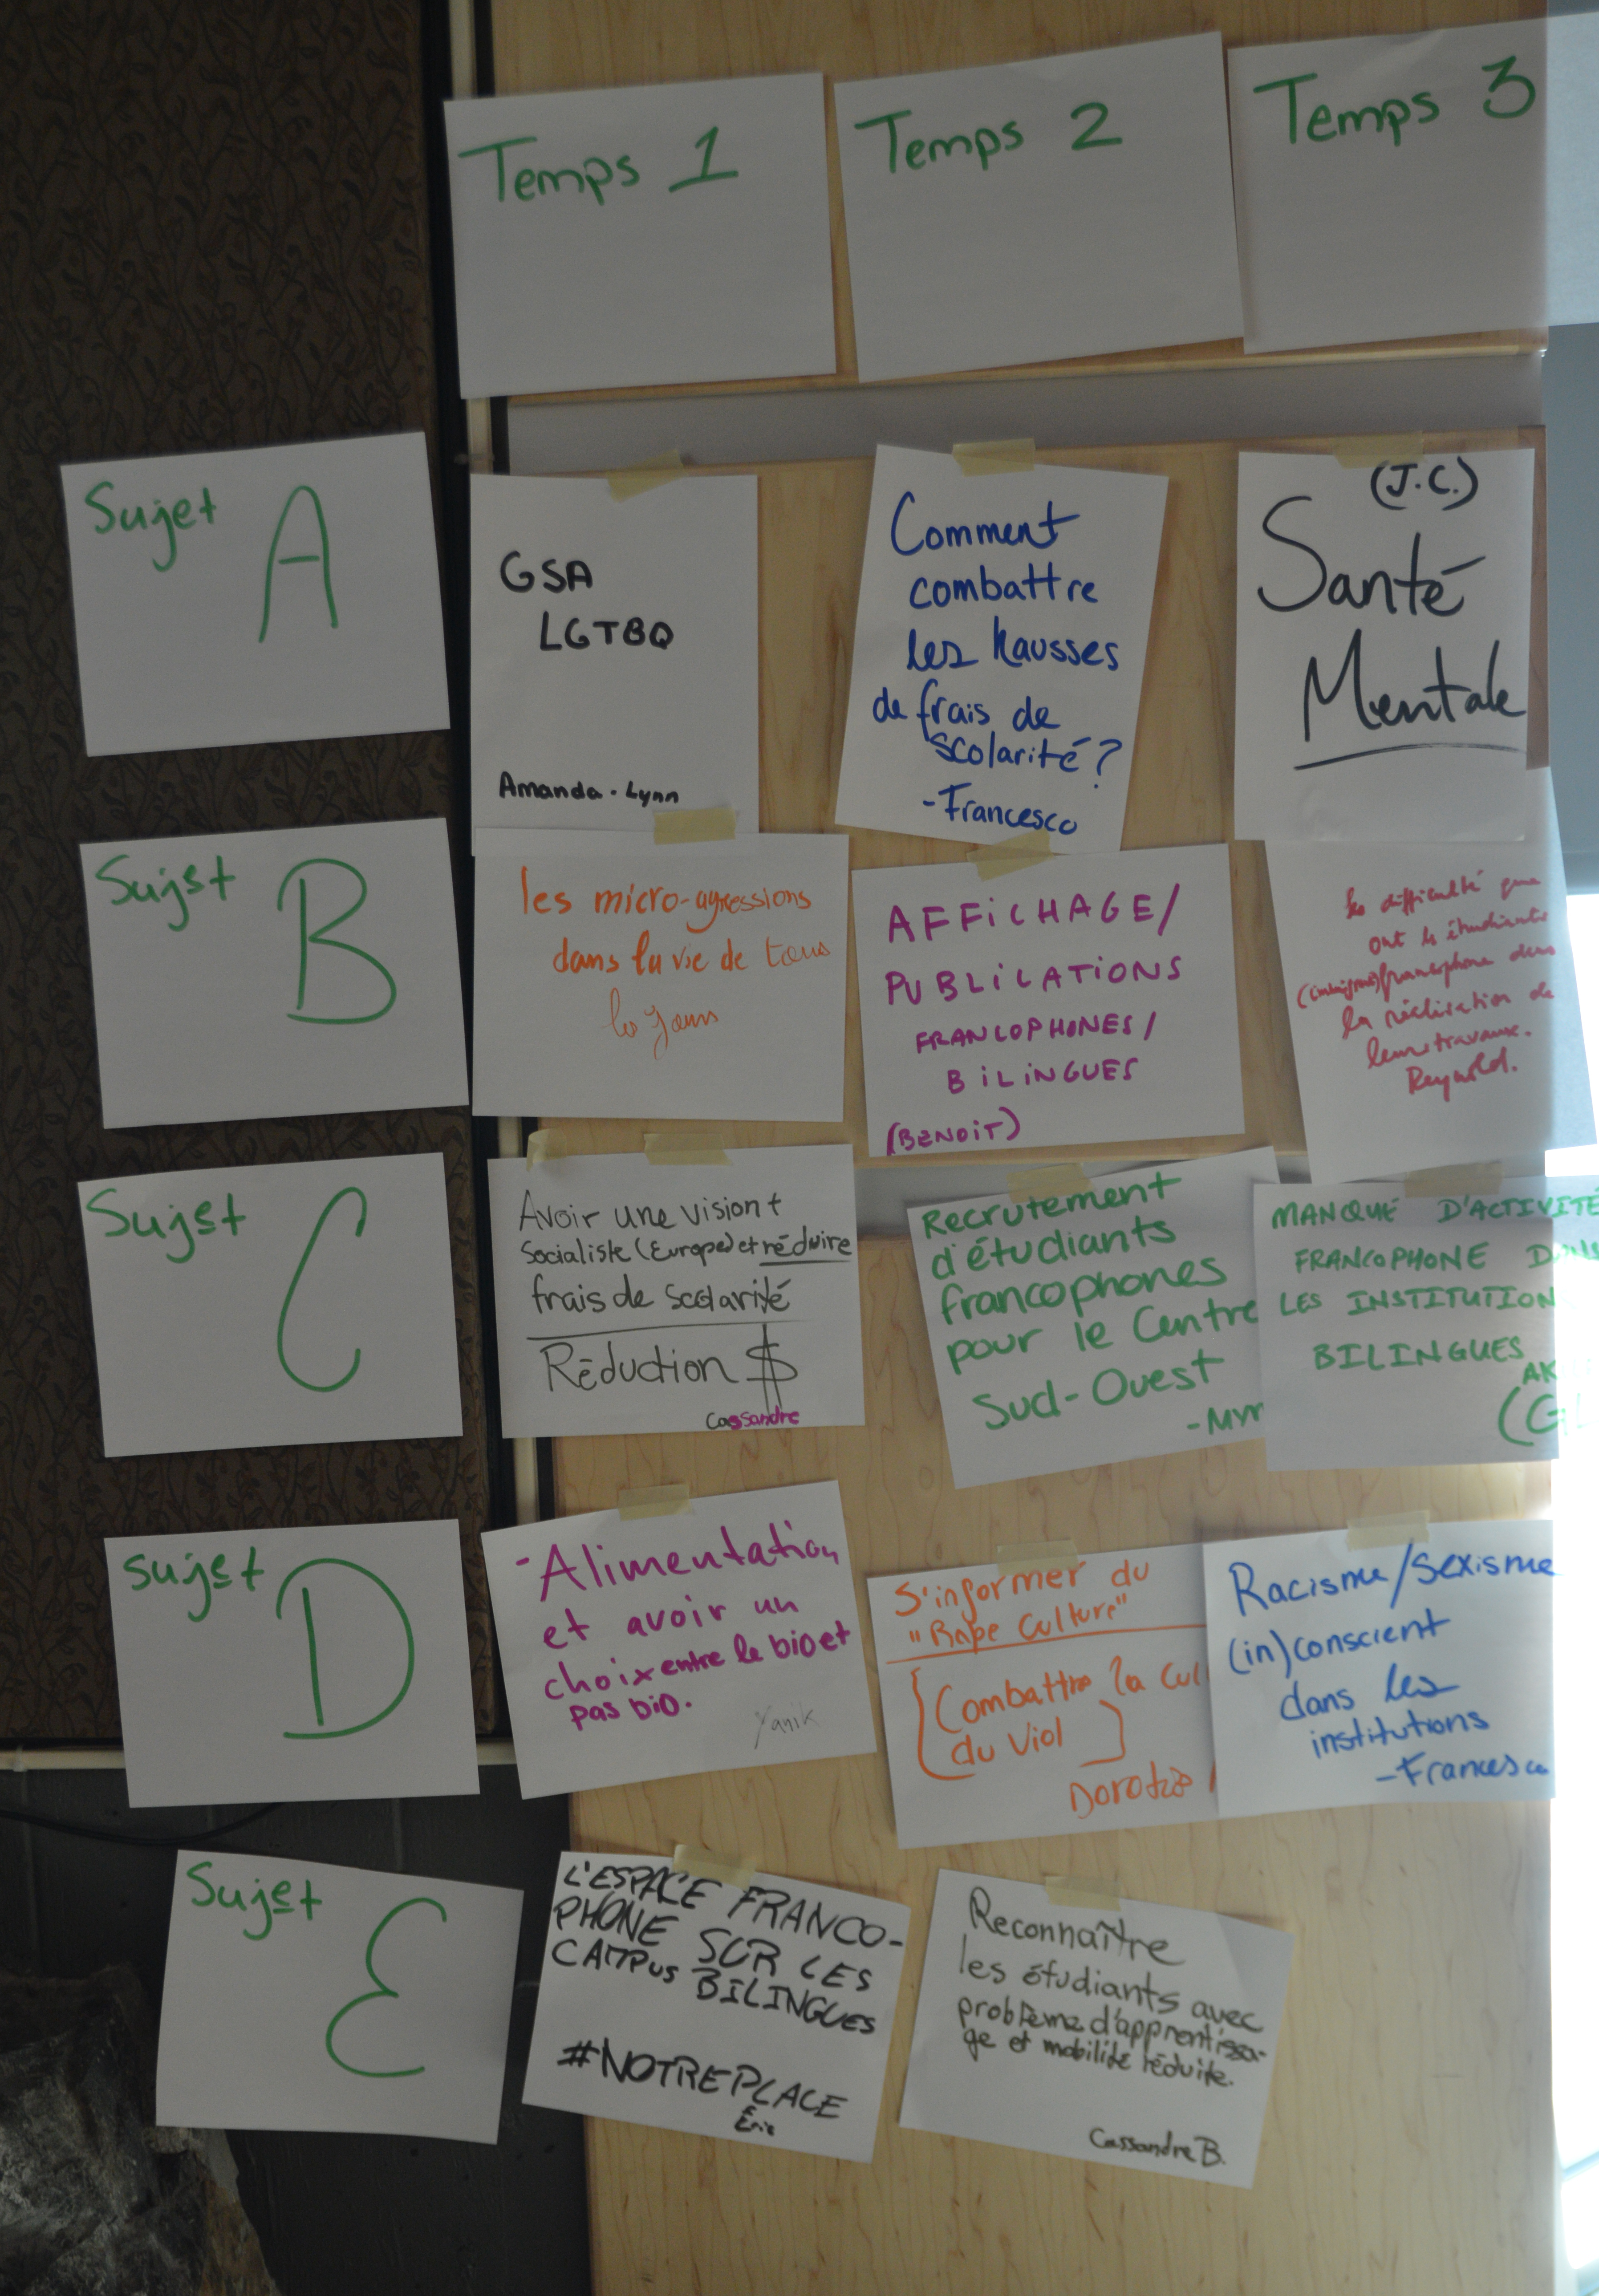 Temps 1
Temps 2
Temps 3
Sujet A
GSA
LGTBQ
Amanda-Lynn
Comment
combattre
les hausses
de frais de
scolarité?
-Francesco
(J.C.)
Santé
Mentale
Sujet B
les micro-agressions
dans la vie de tous
les jours
AFFICHAGE/
PUBLICATIONS
FRANCOPHONES/
BILINGUES
(BENOIT)
les difficulté que
ont les étudiants
francophone dans
la réalisation de
leurs travaux.
Reynold.
Sujet C
Avoir une vision +
Socialiste (Europe) et réduire
frais de scolarité
Réduction $
Cassandre
Recrutement
d'étudiants
francophones
pour le Centre
Sud-Ouest
MANQUE D'ACTIVITÉ
FRANCOPHONE DANS
LES INSTITUTION
BILINGUES
Sujet D
-Alimentation
et avoir un
choix entre le bio et
pas bio.
Yanik
S'informer du
"Rape Culture"
Combattre la cul
du Viol
Racisme/Sexisme
(in)conscient
dans les
institutions
-Francesco
Sujet E
L'ESPACE FRANCO-
PHONE SUR LES
CAMPUS BILINGUES
#NOTREPLACE
Éric
Reconnaître
les étudiants avec
problème d'apprentissa-
ge et mobilité réduite.
Cassandre B.